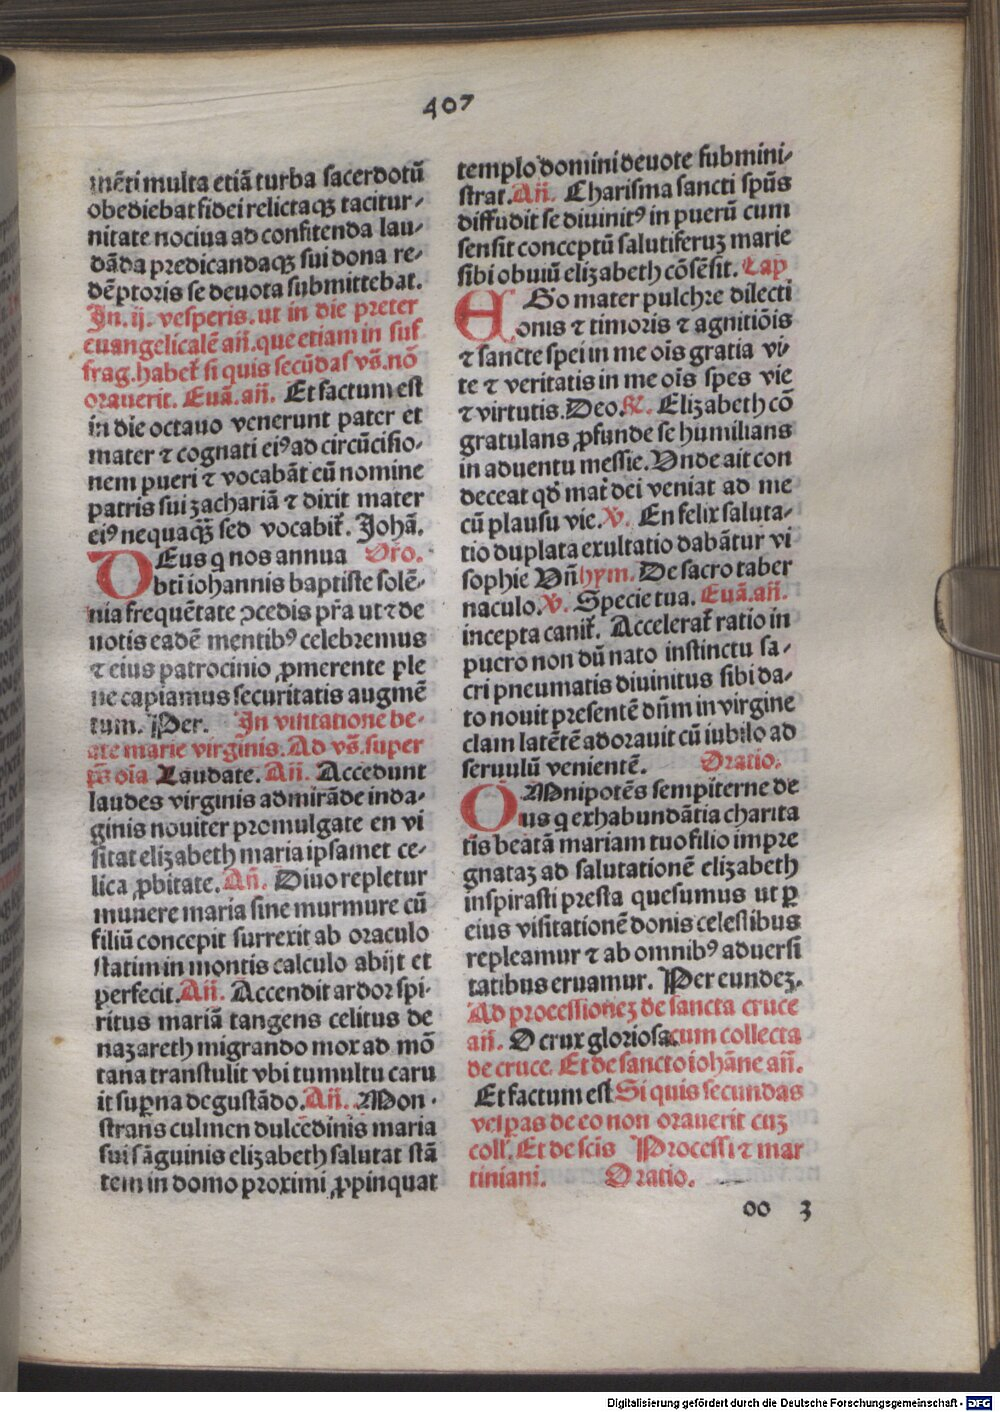 407
mẽti multa etiã turba sacerdotũ
obediebat fidei relictaqꝫ tacitur⸗
nitate nociua ad confitenda lau⸗
dãda predicandaqꝫ sui dona re⸗
dẽptoris se deuota submittebat.
In .ij. vesperis. ut in die preter
euangelicalẽ añ. que etiam in suf
frag. habet̃ si quis secũdas vs̃. nõ
orauerit. Euã. añ. Et factum est
in die octauo venerunt pater et
mater ⁊ cognati eiꝰ ad circũcisio⸗
nem pueri ⁊ vocabãt eũ nomine
patris sui zachariã ⁊ dixit mater
eiꝰ nequaqꝫ̃ sed vocabit̃. Johã.
DEus q nos annua Or̃o.
bti iohannis baptiste solẽ⸗
nia frequẽtate ↄcedis pr̃a ut ⁊ de
uotis eadẽ mentibꝰ celebremus
⁊ eius patrocinio ꝓmerente ple
ne capiamus securitatis augmẽ
tum. Per. In visitatione be⸗
ate marie virginis. Ad vs̃. super
ps̃ oĩa Laudate. Añ. Accedunt
laudes virginis admirãde inda⸗
ginis nouiter promulgate en vi
sitat elizabeth maria ipsamet ce⸗
lica ꝓbitate. Añ. Diuo repletur
munere maria sine murmure cũ
filiũ concepit surrexit ab oraculo
statim in montis calculo abijt et
perfecit. Añ. Accendit ardor spi⸗
ritus mariã tangens celitus de
nazareth migrando mox ad mõ
tana transtulit vbi tumultu caru
it suꝑna degustãdo. Añ. Mon⸗
strans culmen dulcedinis maria
sui sãguinis elizabeth salutat stã
tem in domo proximi ꝓpinquat
templo domini deuote submini⸗
strat. Añ. Charisma sancti spũs
diffudit se diuinitꝰ in puerũ cum
sensit conceptũ salutiferuꝫ marie
sibi obuiũ elizabeth cõsẽsit. Cap̃
EGo mater pulchre dilecti
onis ⁊ timoris ⁊ agnitiõis
⁊ sancte spei in me oĩs gratia vi⸗
te ⁊ veritatis in me oĩs spes vie
⁊ virtutis. Deo. ℟. Elizabeth cõ
gratulans ꝓfunde se humilians
in aduentu messie. Vnde ait con
deceat qđ mat̃ dei veniat ad me
cũ plausu vie. ℣. En felix saluta⸗
tio duplata exultatio dabãtur vi
sophie Vñ hym. De sacro taber
naculo. ℣. Specie tua. Euã. añ.
incepta canit̃. Accelerat̃ ratio in
puero non dũ nato instinctu sa⸗
cri pneumatis diuinitus sibi da⸗
to nouit presentẽ dñm in virgine
clam latẽtẽ adorauit cũ iubilo ad
seruulũ venientẽ. Oratio.
OMnipotẽs sempiterne de
us q exhabundãtia charita
tis beatã mariam tuo filio impre
gnataꝫ ad salutationẽ elizabeth
inspirasti presta quesumus ut ꝑ
eius visitationẽ donis celestibus
repleamur ⁊ ab omnibꝰ aduersi
tatibus eruamur. Per eundeꝫ.
Ad processioneꝫ de sancta cruce
añ. O crux gloriosa. cum collecta
de cruce. Et de sancto iohãne añ.
Et factum est Si quis secundas
vesꝑas de eo non orauerit cuꝫ
coll̃. Et de scĩs Processi ⁊ mar
tiniani. Oratio.
oo 3
Digitalisierung gefördert durch die Deutsche Forschungsgemeinschaft - DFG